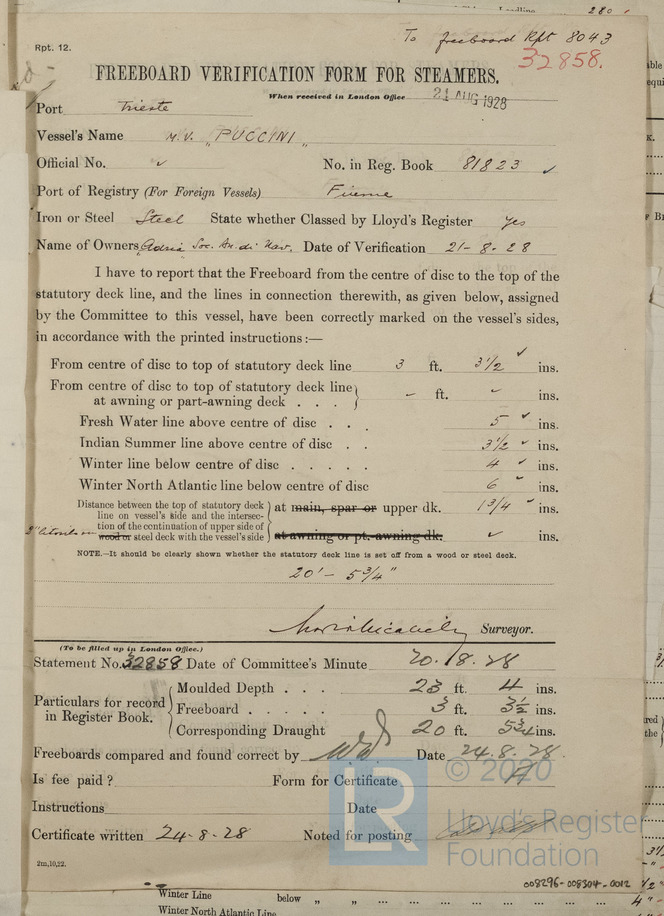 Loadline 280
To freeboard Rpt 8043
Rpt. 12.
32858.
FREEBOARD VERIFICATION FORM FOR STEAMERS.
When received in London Office 21 AUG 1928
Port Trieste
Vessel's Name M.V. "PUCCINI"
Official No. ✓ No. in Reg. Book 81823 ✓
Port of Registry (For Foreign Vessels) Fiume
Iron or Steel Steel State whether Classed by Lloyd's Register Yes
Name of Owners Adria Soc. An. di Nav. Date of Verification 21-8-28
I have to report that the Freeboard from the centre of disc to the top of the
statutory deck line, and the lines in connection therewith, as given below, assigned
by the Committee to this vessel, have been correctly marked on the vessel's sides,
in accordance with the printed instructions:—
From centre of disc to top of statutory deck line 3 ft. 3 1/2 ✓ ins.
From centre of disc to top of statutory deck line
at awning or part-awning deck . . . - ft. - ins.
Fresh Water line above centre of disc . . . 5 ✓ ins.
Indian Summer line above centre of disc . . 3 1/2 ✓ ins.
Winter line below centre of disc . . . . . 4 ✓ ins.
Winter North Atlantic line below centre of disc 6 ✓ ins.
Distance between the top of statutory deck
line on vessel's side and the intersec- at main, spar or upper dk. 1 3/4 ✓ ins.
tion of the continuation of upper side of
wood or steel deck with the vessel's side at awning or pt.-awning dk. ✓ ins.
NOTE.—It should be clearly shown whether the statutory deck line is set off from a wood or steel deck.
20' - 5 3/4"
Surveyor.
(To be filled up in London Office.)
Statement No. 32858 Date of Committee's Minute 20.8.28
Particulars for record in Register Book.
Moulded Depth . . . 23 ft. 4 ins.
Freeboard . . . . . 3 ft. 3 1/2 ins.
Corresponding Draught 20 ft. 5 3/4 ins.
Freeboards compared and found correct by Date 24.8.28
Is fee paid? Form for Certificate A
© 2020
Instructions Date
Lloyd's Register
Foundation
LR
Certificate written 24-8-28 Noted for posting
2m,10,22.
008296-008304-0012
Winter Line below " " ... ... ... ...
Winter North Atlantic Line